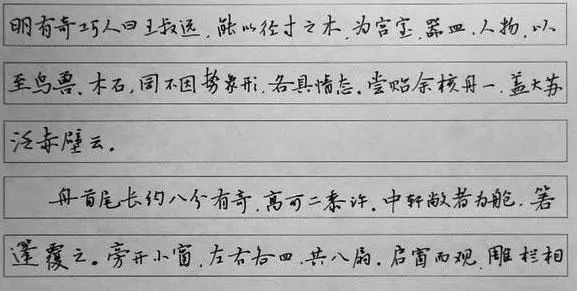 明有奇巧人曰王叔远,能以径寸之木,为宫室、器皿、人物,以
至鸟兽、木石,罔不因势象形,各具情态。尝贻余核舟一,盖大苏
泛赤壁云。
舟首尾长约八分有奇,高可二黍许。中轩敞者为舱,箬
篷覆之。旁开小窗,左右各四,共八扇。启窗而观,雕栏相